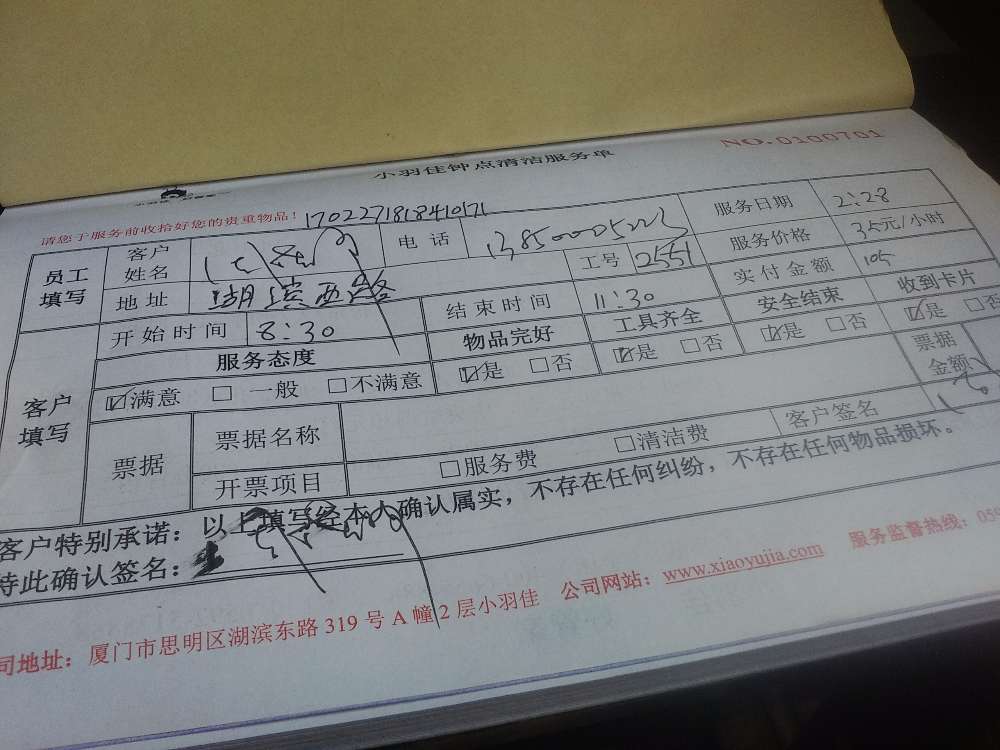 NO.0100701
小羽佳钟点清洁服务单
请您于服务前收拾好您的贵重物品！ 1702271818410171
员工填写 客户姓名 电话 13850005223 服务日期 2:28
地址 湖滨西路 工号 2551 服务价格 35元/小时
客户填写 开始时间 8:30 结束时间 11:30 实付金额 105
服务态度 物品完好 工具齐全 安全结束 收到卡片
☑满意 □ 一般 □不满意 ☑是 □否 ☑是 □否 ☑是 □否 ☑是 □否
票据 票据名称 票据金额
开票项目 □服务费 □清洁费 客户签名
客户特别承诺：以上填写经本人确认属实，不存在任何纠纷，不存在任何物品损坏。
特此确认签名：
司地址：厦门市思明区湖滨东路 319 号 A 幢 2 层小羽佳 公司网站：www.xiaoyujia.com 服务监督热线：059